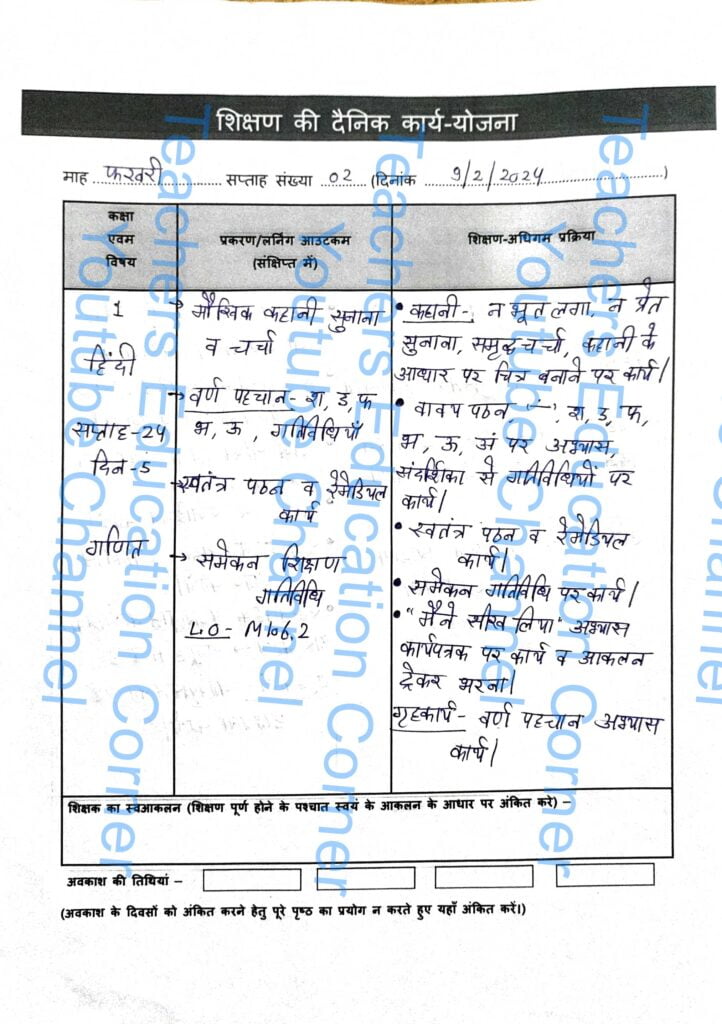 शिक्षण की दैनिक कार्य-योजना
माह फरवरी सप्ताह संख्या 02 (दिनांक 9/2/2024)
कक्षा
एवम
विषय
प्रकरण/लर्निंग आउटकम
(संक्षिप्त में)
शिक्षण-अधिगम प्रक्रिया
1
हिंदी
सप्ताह-24
दिन-5
गणित
→ मौखिक कहानी सुनाना
व चर्चा
→ वर्ण पहचान- श, ड, फ
भ, ऊ, गतिविधियाँ
→ स्वतंत्र पठन व रेमेडियल
कार्य
→ समेकन शिक्षण
गतिविधि
LO- M106.2
• कहानी-: न भूत लगा, न प्रेत
सुनाना, समृद्ध चर्चा, कहानी के
आधार पर चित्र बनाने पर कार्य।
• वाक्य पठन, श, ड, फ,
भ, ऊ, अं पर अभ्यास,
संदर्शिका से गतिविधियों पर
कार्य।
• स्वतंत्र पठन व रेमेडियल
कार्य।
• समेकन गतिविधि पर कार्य।
• "मैने सीख लिया" अभ्यास
कार्यपत्रक पर कार्य व आकलन
ट्रेकर भरना।
गृहकार्य- वर्ण पहचान अभ्यास
कार्य।
शिक्षक का स्वआकलन (शिक्षण पूर्ण होने के पश्चात स्वयं के आकलन के आधार पर अंकित करे) –
अवकाश की तिथियां –
(अवकाश के दिवसों को अंकित करने हेतु पूरे पृष्ठ का प्रयोग न करते हुए यहाँ अंकित करें।)
Teachers Education Corner
Youtube Channel
Teachers Education Corner
Youtube Channel
Teachers Education Corner
Youtube Channel